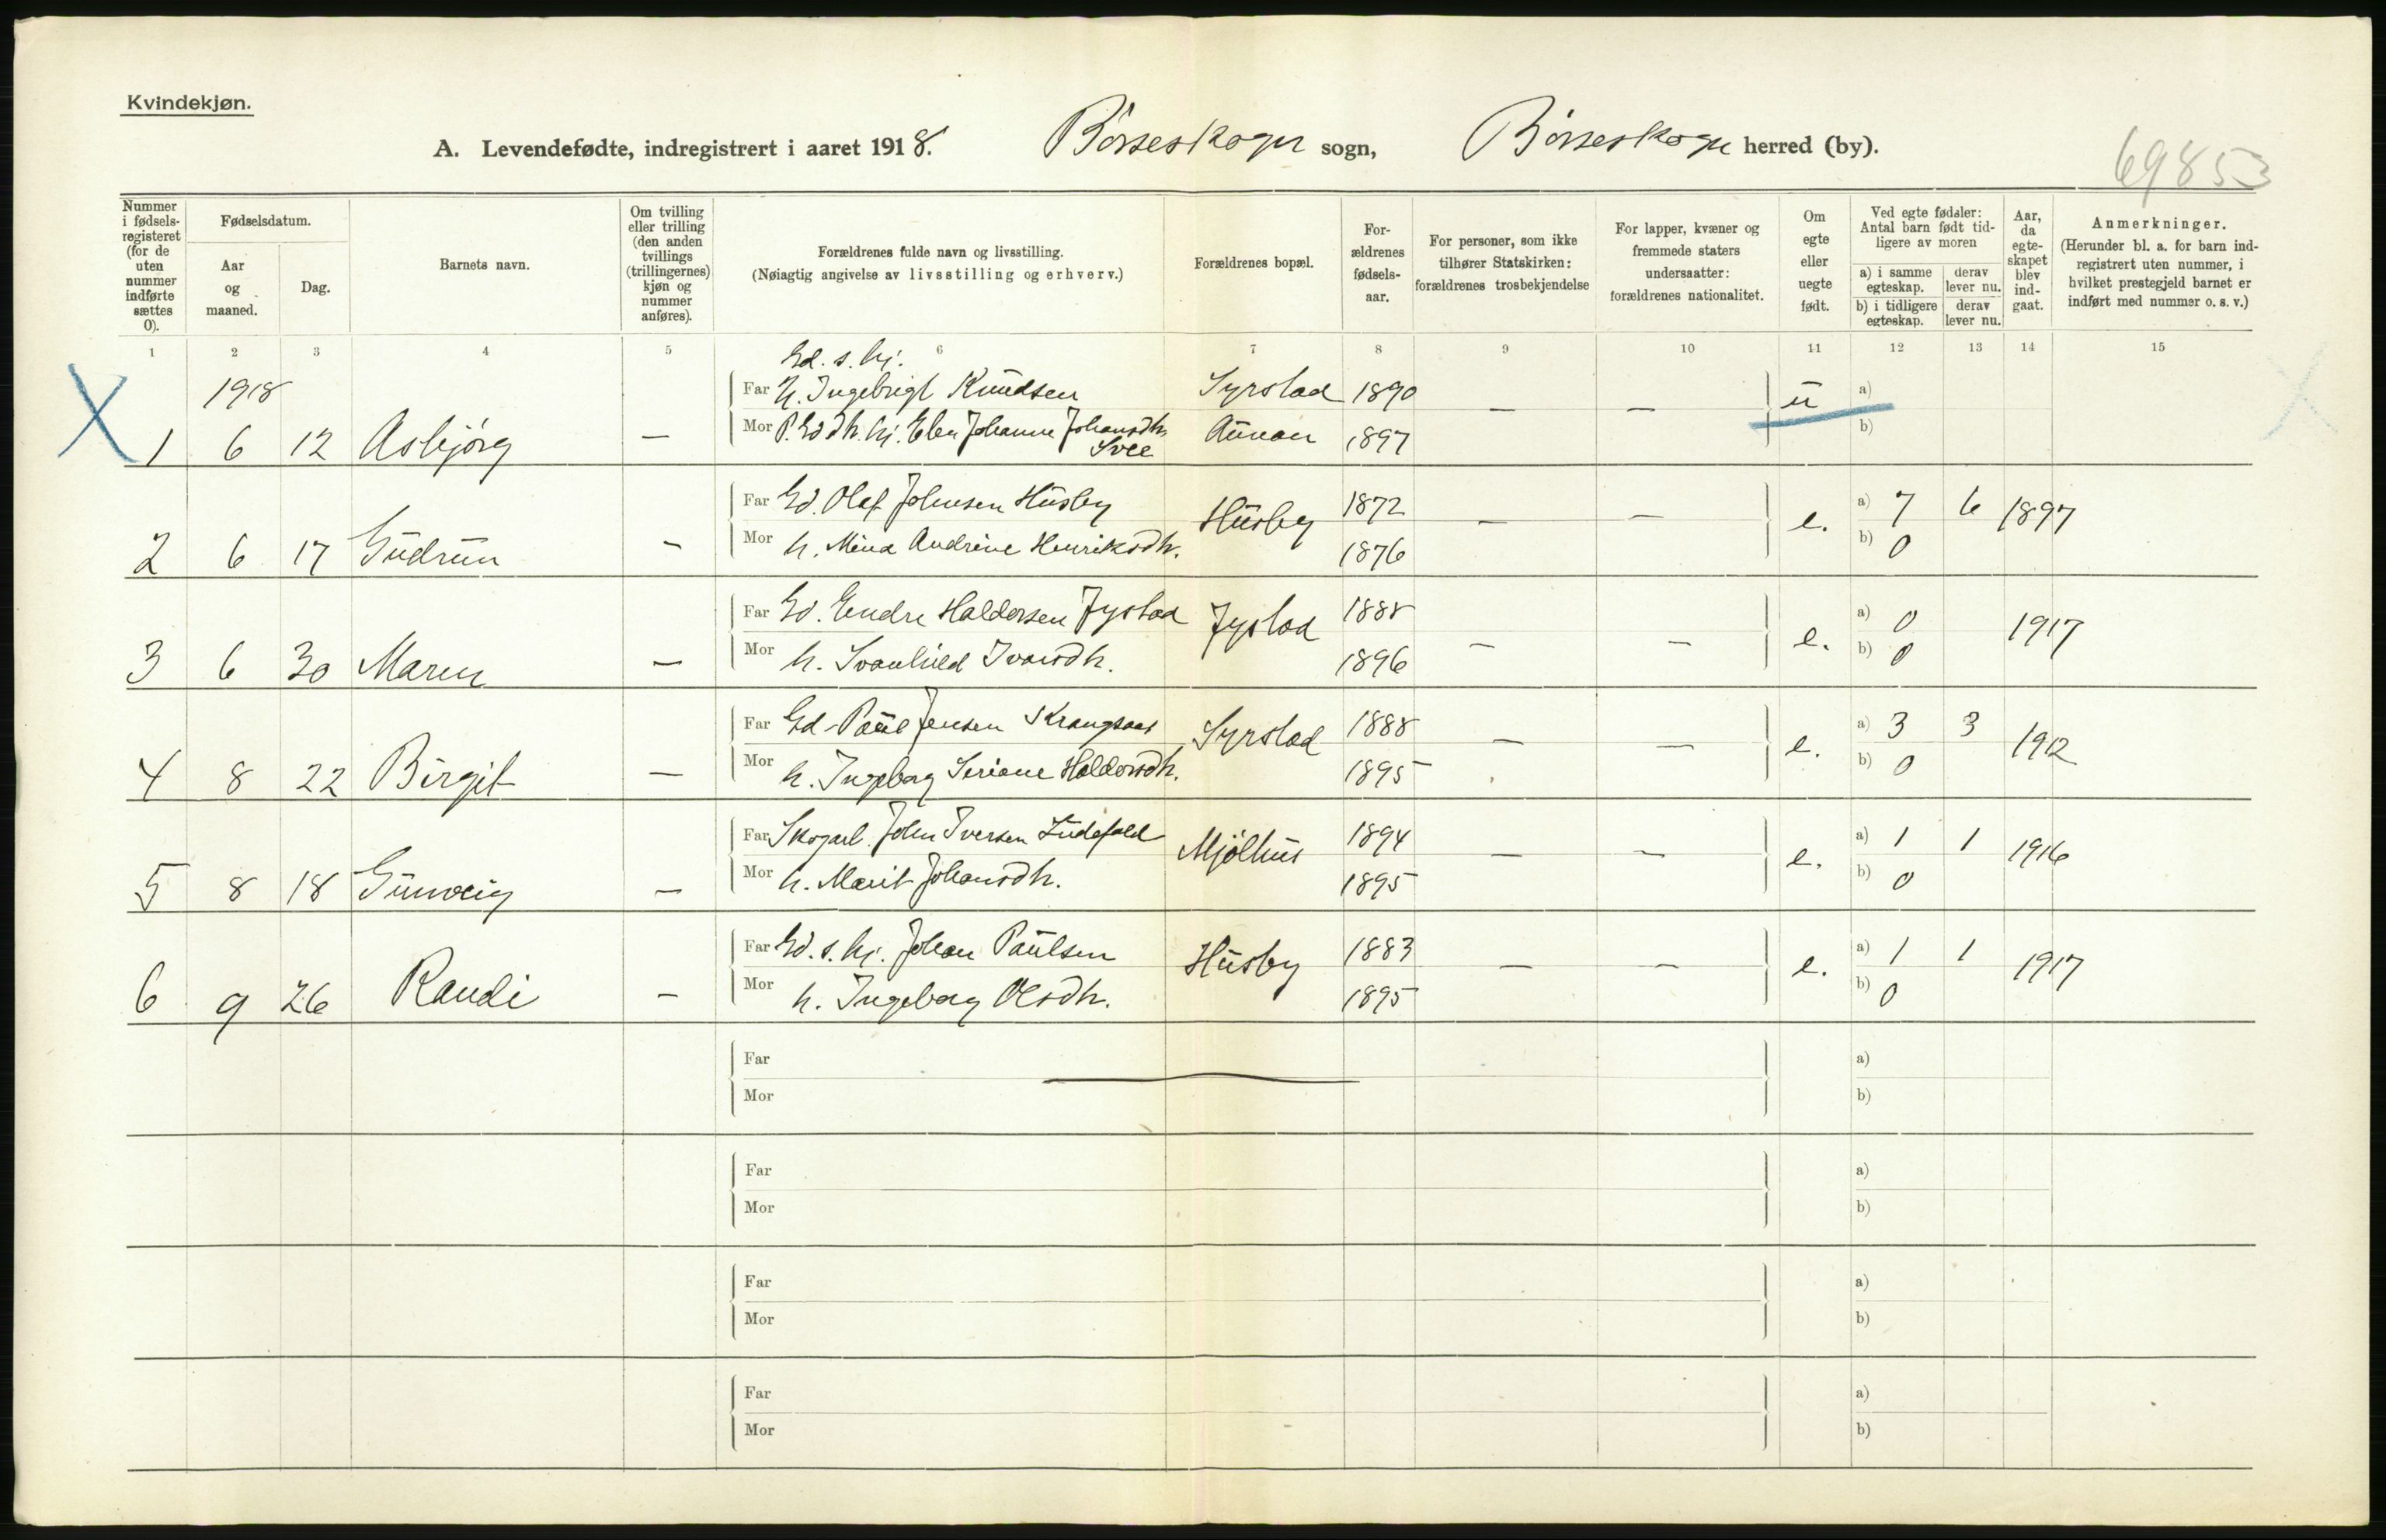 Kvindekjøn.
A. Levendefødte, indregistrert i aaret 1918. Børseskogn sogn, Børseskogn herred (by).
69853
Nummer i fødsels-registeret (for de uten nummer indførte sættes 0).
Fødselsdatum.
Aar og maaned.
Dag.
Barnets navn.
Om tvilling eller trilling (den anden tvillings (trillingernes) kjøn og nummer anføres).
Forældrenes fulde navn og livsstilling.
(Nøiagtig angivelse av livsstilling og erhverv.)
Forældrenes bopæl.
For-ældrenes fødsels-aar.
For personer, som ikke tilhører Statskirken: forældrenes trosbekjendelse
For lapper, kvæner og fremmede staters undersaatter: forældrenes nationalitet.
Om egte eller uegte født.
Ved egte fødsler: Antal barn født tid-ligere av moren
a) i samme egteskap. derav lever nu.
b) i tidligere egteskap. derav lever nu.
Aar, da egte-skapet blev ind-gaat.
Anmerkninger.
(Herunder bl. a. for barn ind-registrert uten nummer, i hvilket prestegjeld barnet er indført med nummer o. s. v.)
1 2 3 4 5 6 7 8 9 10 11 12 13 14 15
Gd. s. hj.
1918 Far Ingebrigt Knudsen Syrstad 1890 — — u a)
1 6 12 Asbjørg — Mor P. Gd dtr. hj. Elen Johanne Johansdtr. Aunan 1897 b)
Svee
Far Gd. Olaf Johnsen Husby Husby 1872 — — e. a) 7 6 1897
2 6 17 Gudrun — Mor h. Mina Andrine Henriksdtr. 1876 b) 0
Far Gd. Endre Haldorsen Fystad Fystad 1888 — — e. a) 0 1917
3 6 30 Maren — Mor h. Svanhild Ivarsdtr. 1896 b) 0
Far Gd. Paul Jensen Krangsaas Syrstad 1888 — — e. a) 3 3 1912
4 8 22 Birgit — Mor h. Ingeborg Seriane Haldorsdtr. 1895 b) 0
Far Skogarb. John Iversen Mjølhus 1894 — — e. a) 1 1 1916
5 8 18 Gunveig — Mor h. Marit Johansdtr. 1895 b) 0
Far Gd. s. hj. Johan Paulsen Husby 1883 — — e. a) 1 1 1917
6 9 26 Randi — Mor h. Ingeborg Olsdtr. 1895 b) 0
Far a)
Mor b)
Far a)
Mor b)
Far a)
Mor b)
Far a)
Mor b)